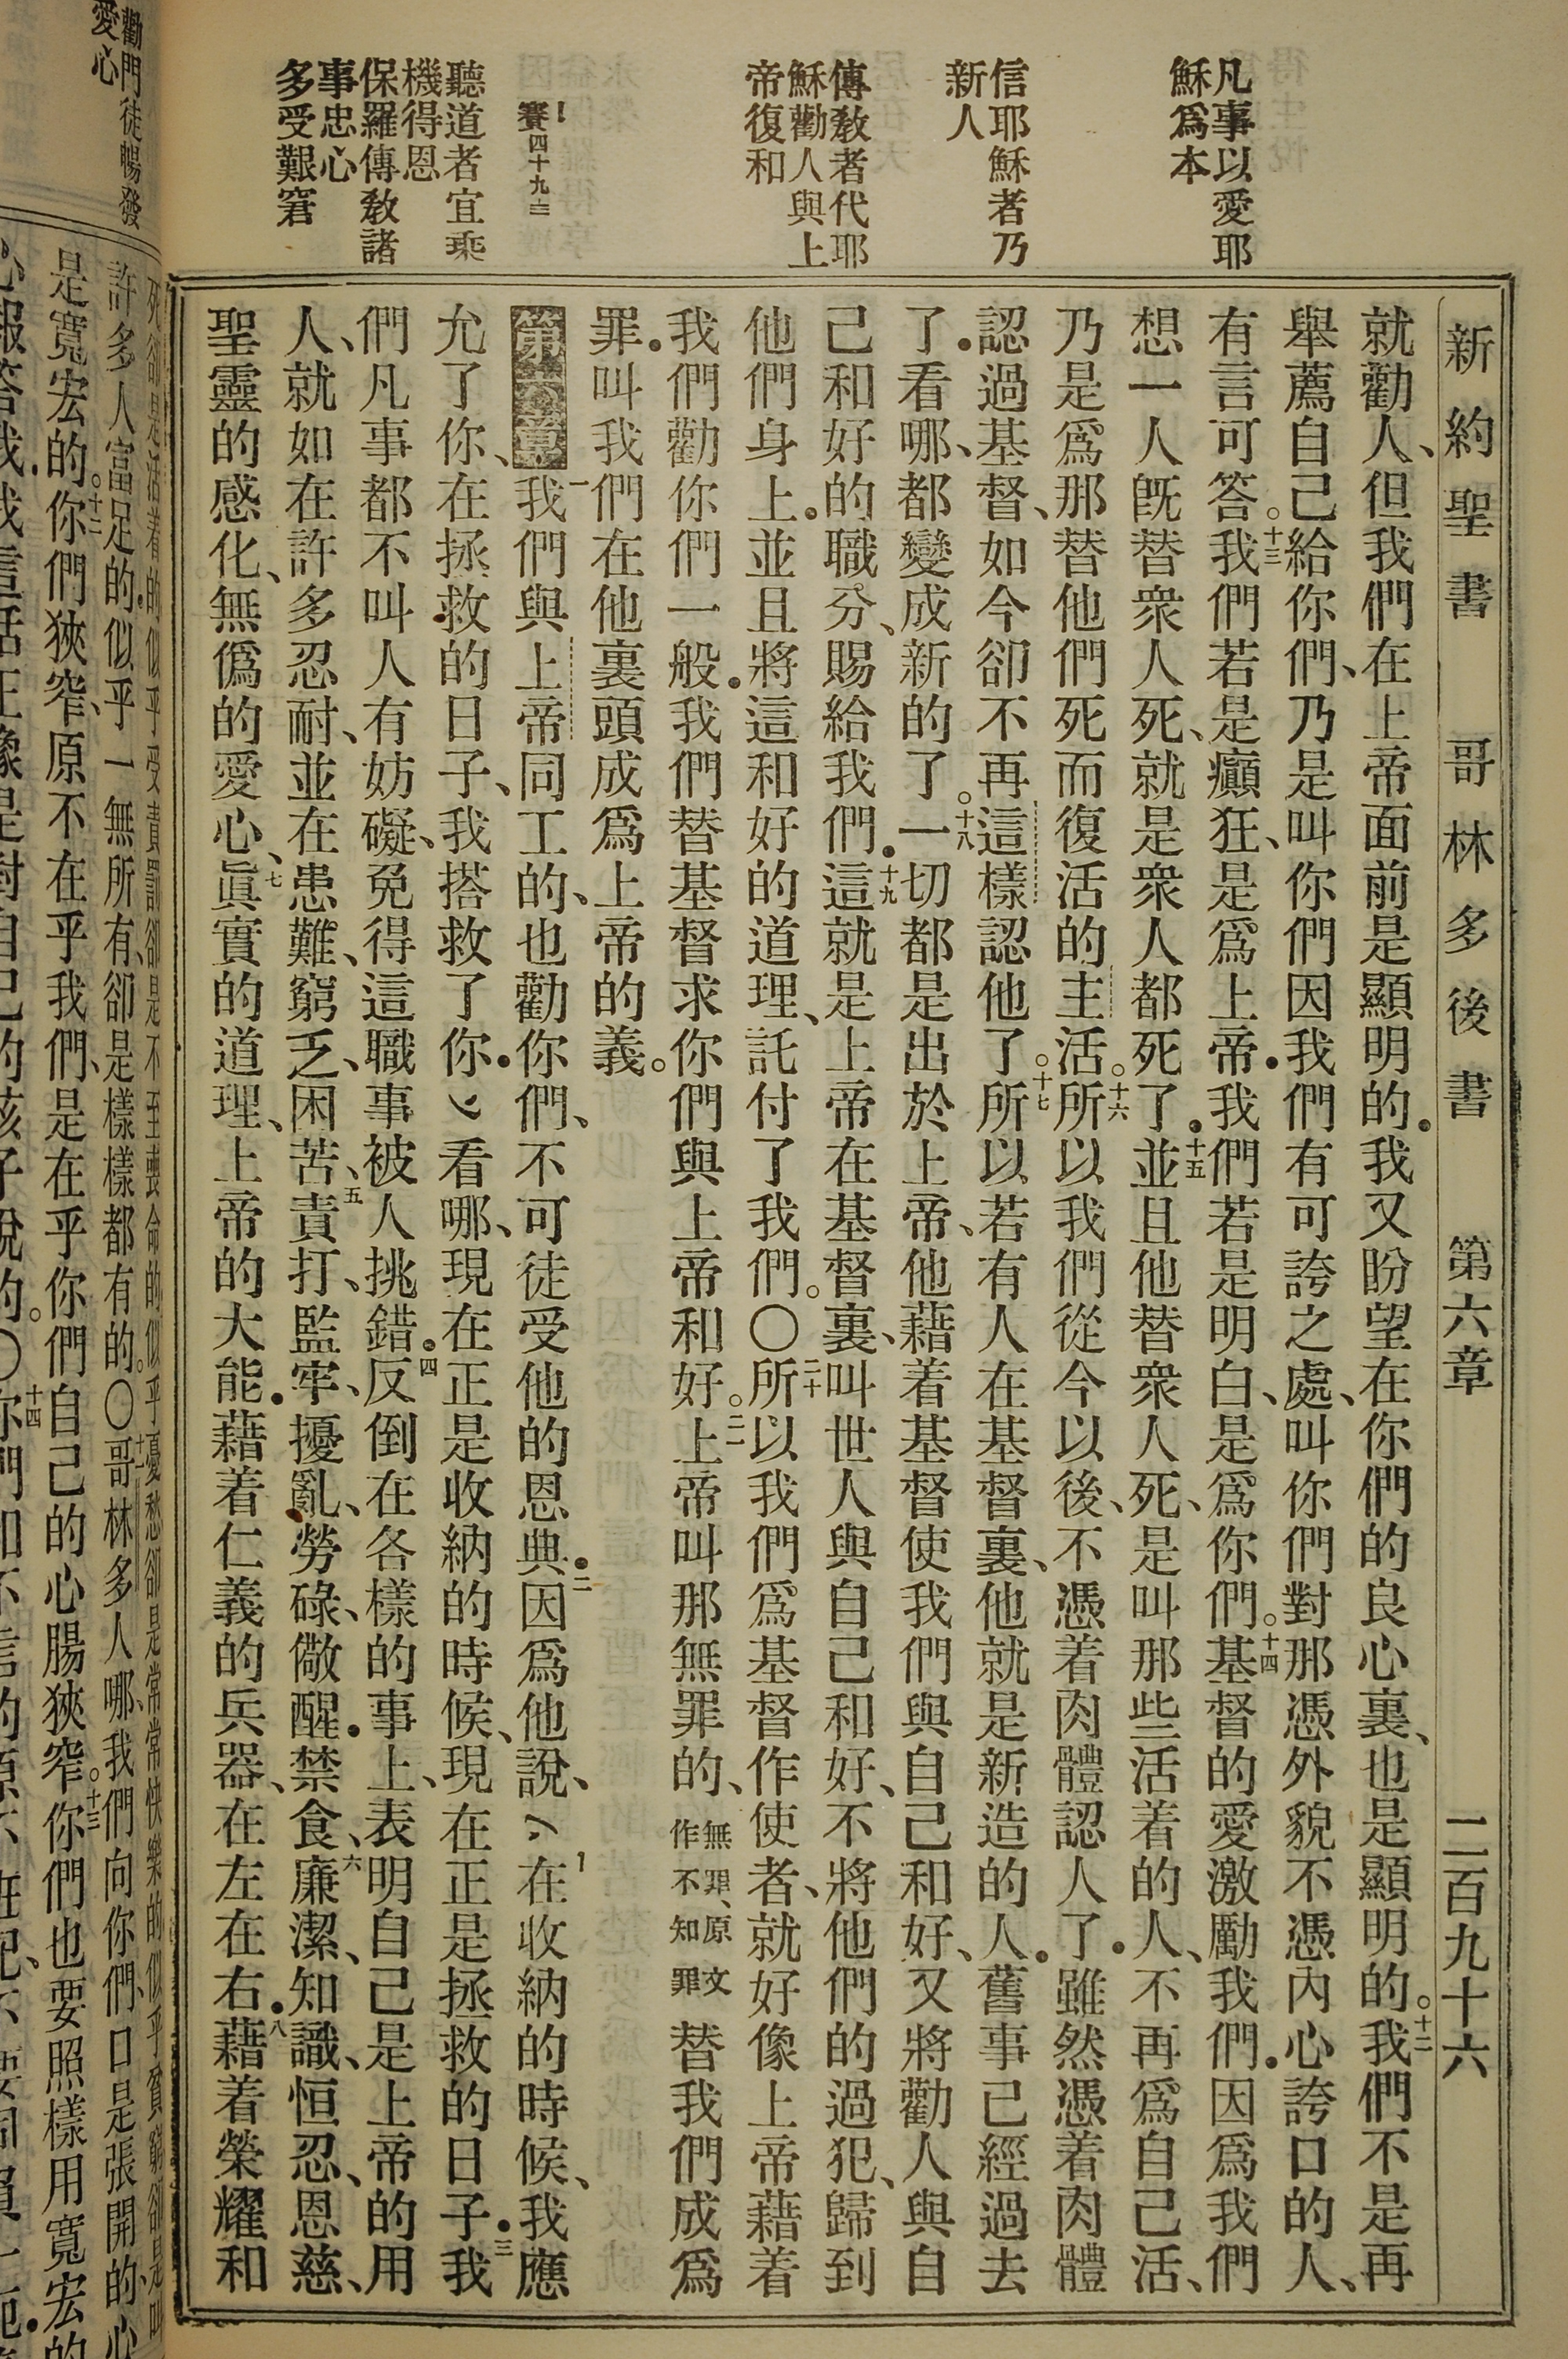 新約聖書 哥林多後書 第六章 二百九十六
凡事以愛耶
穌爲本
信耶穌者乃
新人
傳教者代耶
穌勸人與上
帝復和
賽四十九
聽道者宜乘
機得恩
保羅傳教諸
事忠心
多受艱窘
就勸人、但我們在上帝面前是顯明的.我又盼望在你們的良心裏、也是顯明的。十二我們不是再
舉薦自己給你們、乃是叫你們因我們有可誇之處、叫你們對那憑外貌不憑內心誇口的人、
有言可答。十三我們若是癲狂、是爲上帝.我們若是明白、是爲你們。十四基督的愛激勵我們.因爲我們
想一人旣替衆人死、就是衆人都死了.十五並且他替衆人死、是叫那些活着的人、不再爲自己活、
乃是爲那替他們死而復活的主活。十六所以我們從今以後、不憑着肉體認人了.雖然憑着肉體
認過基督、如今卻不再這樣認他了。十七所以若有人在基督裏、他就是新造的人.舊事已經過去
了.看哪、都變成新的了。十八一切都是出於上帝、他藉着基督使我們與自己和好、又將勸人與自
己和好的職分、賜給我們.十九這就是上帝在基督裏、叫世人與自己和好、不將他們的過犯、歸到
他們身上.並且將這和好的道理、託付了我們。〇二十所以我們爲基督作使者、就好像上帝藉着
我們勸你們一般.我們替基督求你們與上帝和好。二一上帝叫那無罪的、無罪、原文作不知罪替我們成爲
罪.叫我們在他裏頭成爲上帝的義。
第六章一我們與上帝同工的、也勸你們、不可徒受他的恩典.二因爲他說、在收納的時候、我應
允了你、在拯救的日子、我搭救了你.看哪、現在正是收納的時候、現在正是拯救的日子.三我
們凡事都不叫人有妨礙、免得這職事被人挑錯.四反倒在各樣的事上、表明自己是上帝的用
人、就如在許多忍耐、並在患難、窮乏、困苦、五責打、監牢、擾亂、勞碌、儆醒.禁食、六廉潔、知識、恒忍、恩慈、
聖靈的感化、無僞的愛心、七眞實的道理、上帝的大能.藉着仁義的兵器、在左在右.八藉着榮耀和
勸門徒暢發
愛心
死卻是活着的似乎受責罰卻是不至喪命的似乎憂愁卻是常常快樂的似乎貧窮卻是叫
許多人富足的.似乎一無所有、卻是樣樣都有的。〇十一哥林多人哪、我們向你們、口是張開的、心
是寬宏的。十二你們狹窄、原不在乎我們、是在乎你們自己的心腸狹窄。十三你們也要照樣用寬宏的